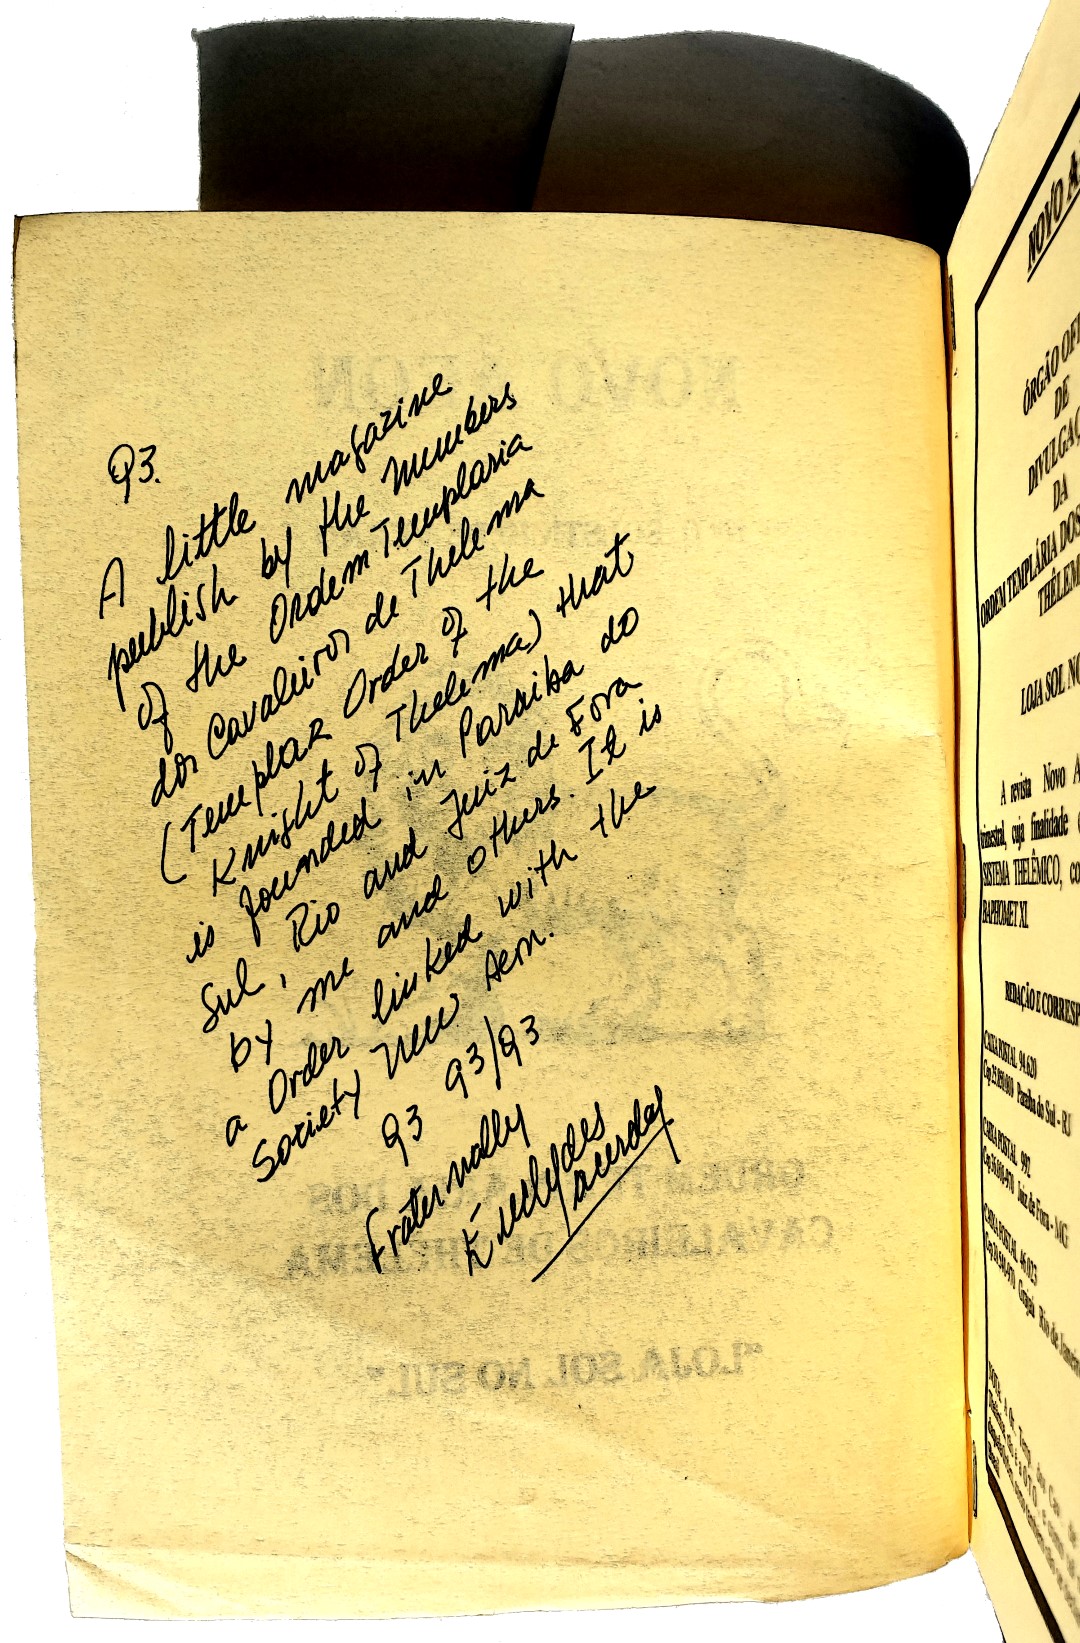 93.
A little magazine
publish by the members
of the Ordem Templaria
dos Cavaleiros de Thelema
(Templar Order of the
Knight of Thelema) that
is founded in Paraiba do
Sul, Rio and Juiz de Fora
by me and others. It is
a Order linked with the
Society New Aeon.
93 93/93
Fraternally
Euclydes
Lacerda
NOVO A
ÓRGÃO OFI
DE
DIVULGAÇ
DA
ORDEM TEMPLÁRIA DOS
THÊLEM
LOJA SOL NO
A revista Novo A
trimestral, cuja finalidade
SISTEMA THELÊMICO, co
BAPHOMET XI.
REDAÇÃO E CORRESP
CAIXA POSTAL 94.620
Paraíba do Sul - RJ
CAIXA POSTAL 992
Juiz de Fora - MG
CAIXA POSTAL 46.023
Grajaú Rio de Janeiro
NOVO AEON
ORDEM TEMPLÁRIA DOS
CAVALEIROS DE THELEMA
"LOJA SOL NO SUL"